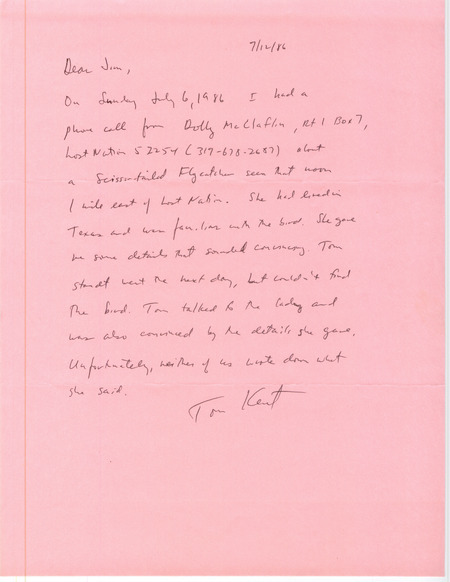 7/12/86
Dear Jim,
On Sunday July 6, 1986 I had a
phone call from Dolly McClaflin, Rt 1 Box 7,
Lost Nation 52254 (319-678-2687) about
a Scissor-tailed Flycatcher seen that noon
1 mile east of Lost Nation. She had lived in
Texas and was familiar with the bird. She gave
me some details that sounded convincing. Tom
Staudt went the next day, but couldn't find
the bird. Tom talked to the lady and
was also convinced by the details she gave.
Unfortunately, neither of us wrote down what
she said.
Tom Kent